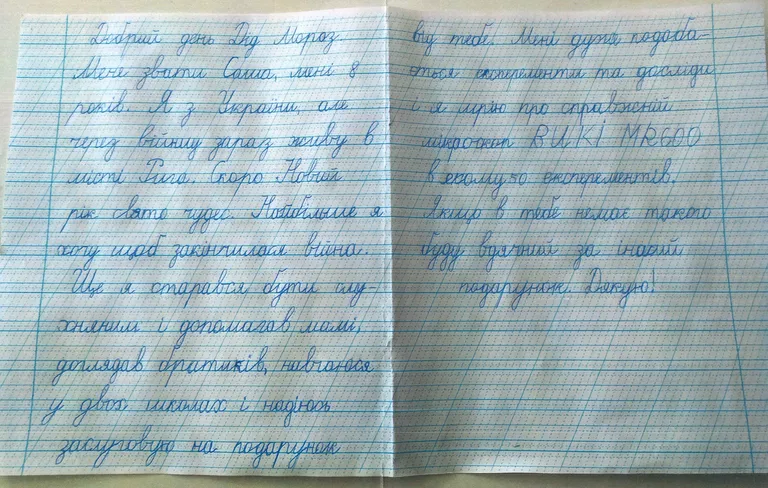 Добрий день Дід Мороз.
Мене звати Саша, мені 8
років. Я з України, але
через війну зараз живу в
місті Рига. Скоро Новий
рік свято чудес. Найбільше я
хочу щоб закінчилася війна.
Ще я старався бути слу-
хняним і допомагав мамі,
доглядав братиків, навчаюся
у двох школах і надіюсь
заслуговую на подарунок
від тебе. Мені дуже подоба-
ється експеременти та досліди
і я мрію про справжній
мікроскоп BUKI MR600
експерементів.
Якщо в тебе немає такого
буду вдячний за інший
подарунок. Дякую!